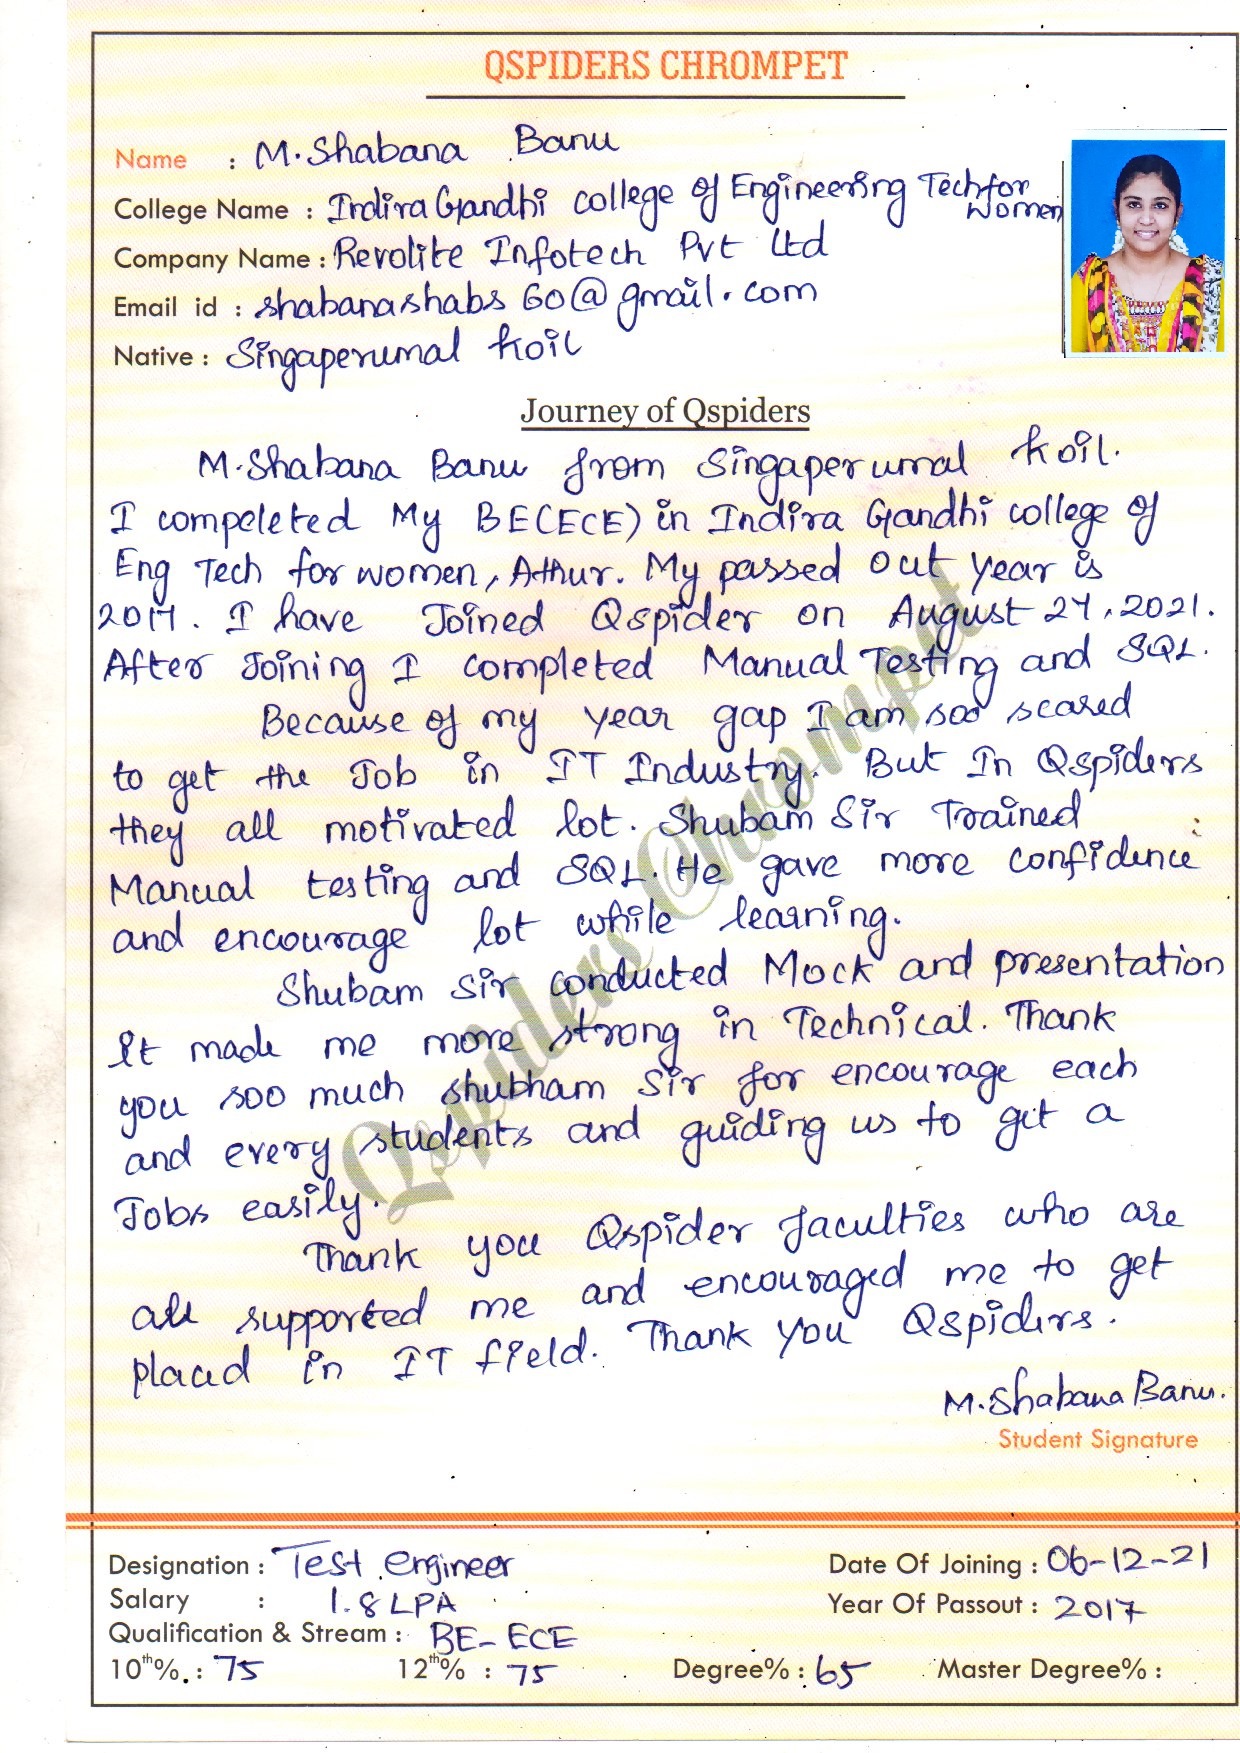 QSPIDERS CHROMPET
Name : M.Shabana Banu
College Name : Indira Gandhi college of Engineering Tech for women
Company Name : Revolite Infotech Pvt Ltd
Email id : shabanashabs60@gmail.com
Native : Singaperumal Koil
Journey of Qspiders
M.Shabana Banu from Singaperumal Koil.
I compeleted My BE(ECE) in Indira Gandhi college of
Eng Tech for women, Athur. My passed out year is
2017. I have Joined Qspider on August 24, 2021.
After Joining I completed Manual Testing and SQL.
Because of my year gap I am soo scared
to get the Job in IT Industry. But In Qspiders
they all motivated lot. Shubam Sir Trained
Manual testing and SQL. He gave more confidence
and encourage lot while learning.
Shubam Sir conducted Mock and presentation
It made me more strong in Technical. Thank
you soo much shubham Sir for encourage each
and every students and guiding us to get a
Jobs easily.
Thank you Qspider faculties who are
all supported me and encouraged me to get
placed in IT field. Thank you Qspiders.
M.Shabana Banu.
Student Signature
Qspiders Chrompet
Designation : Test engineer Date Of Joining : 06-12-21
Salary : 1.8 LPA Year Of Passout : 2017
Qualification & Stream : BE- ECE
10th%. : 75 12th% : 75 Degree% : 65 Master Degree% :